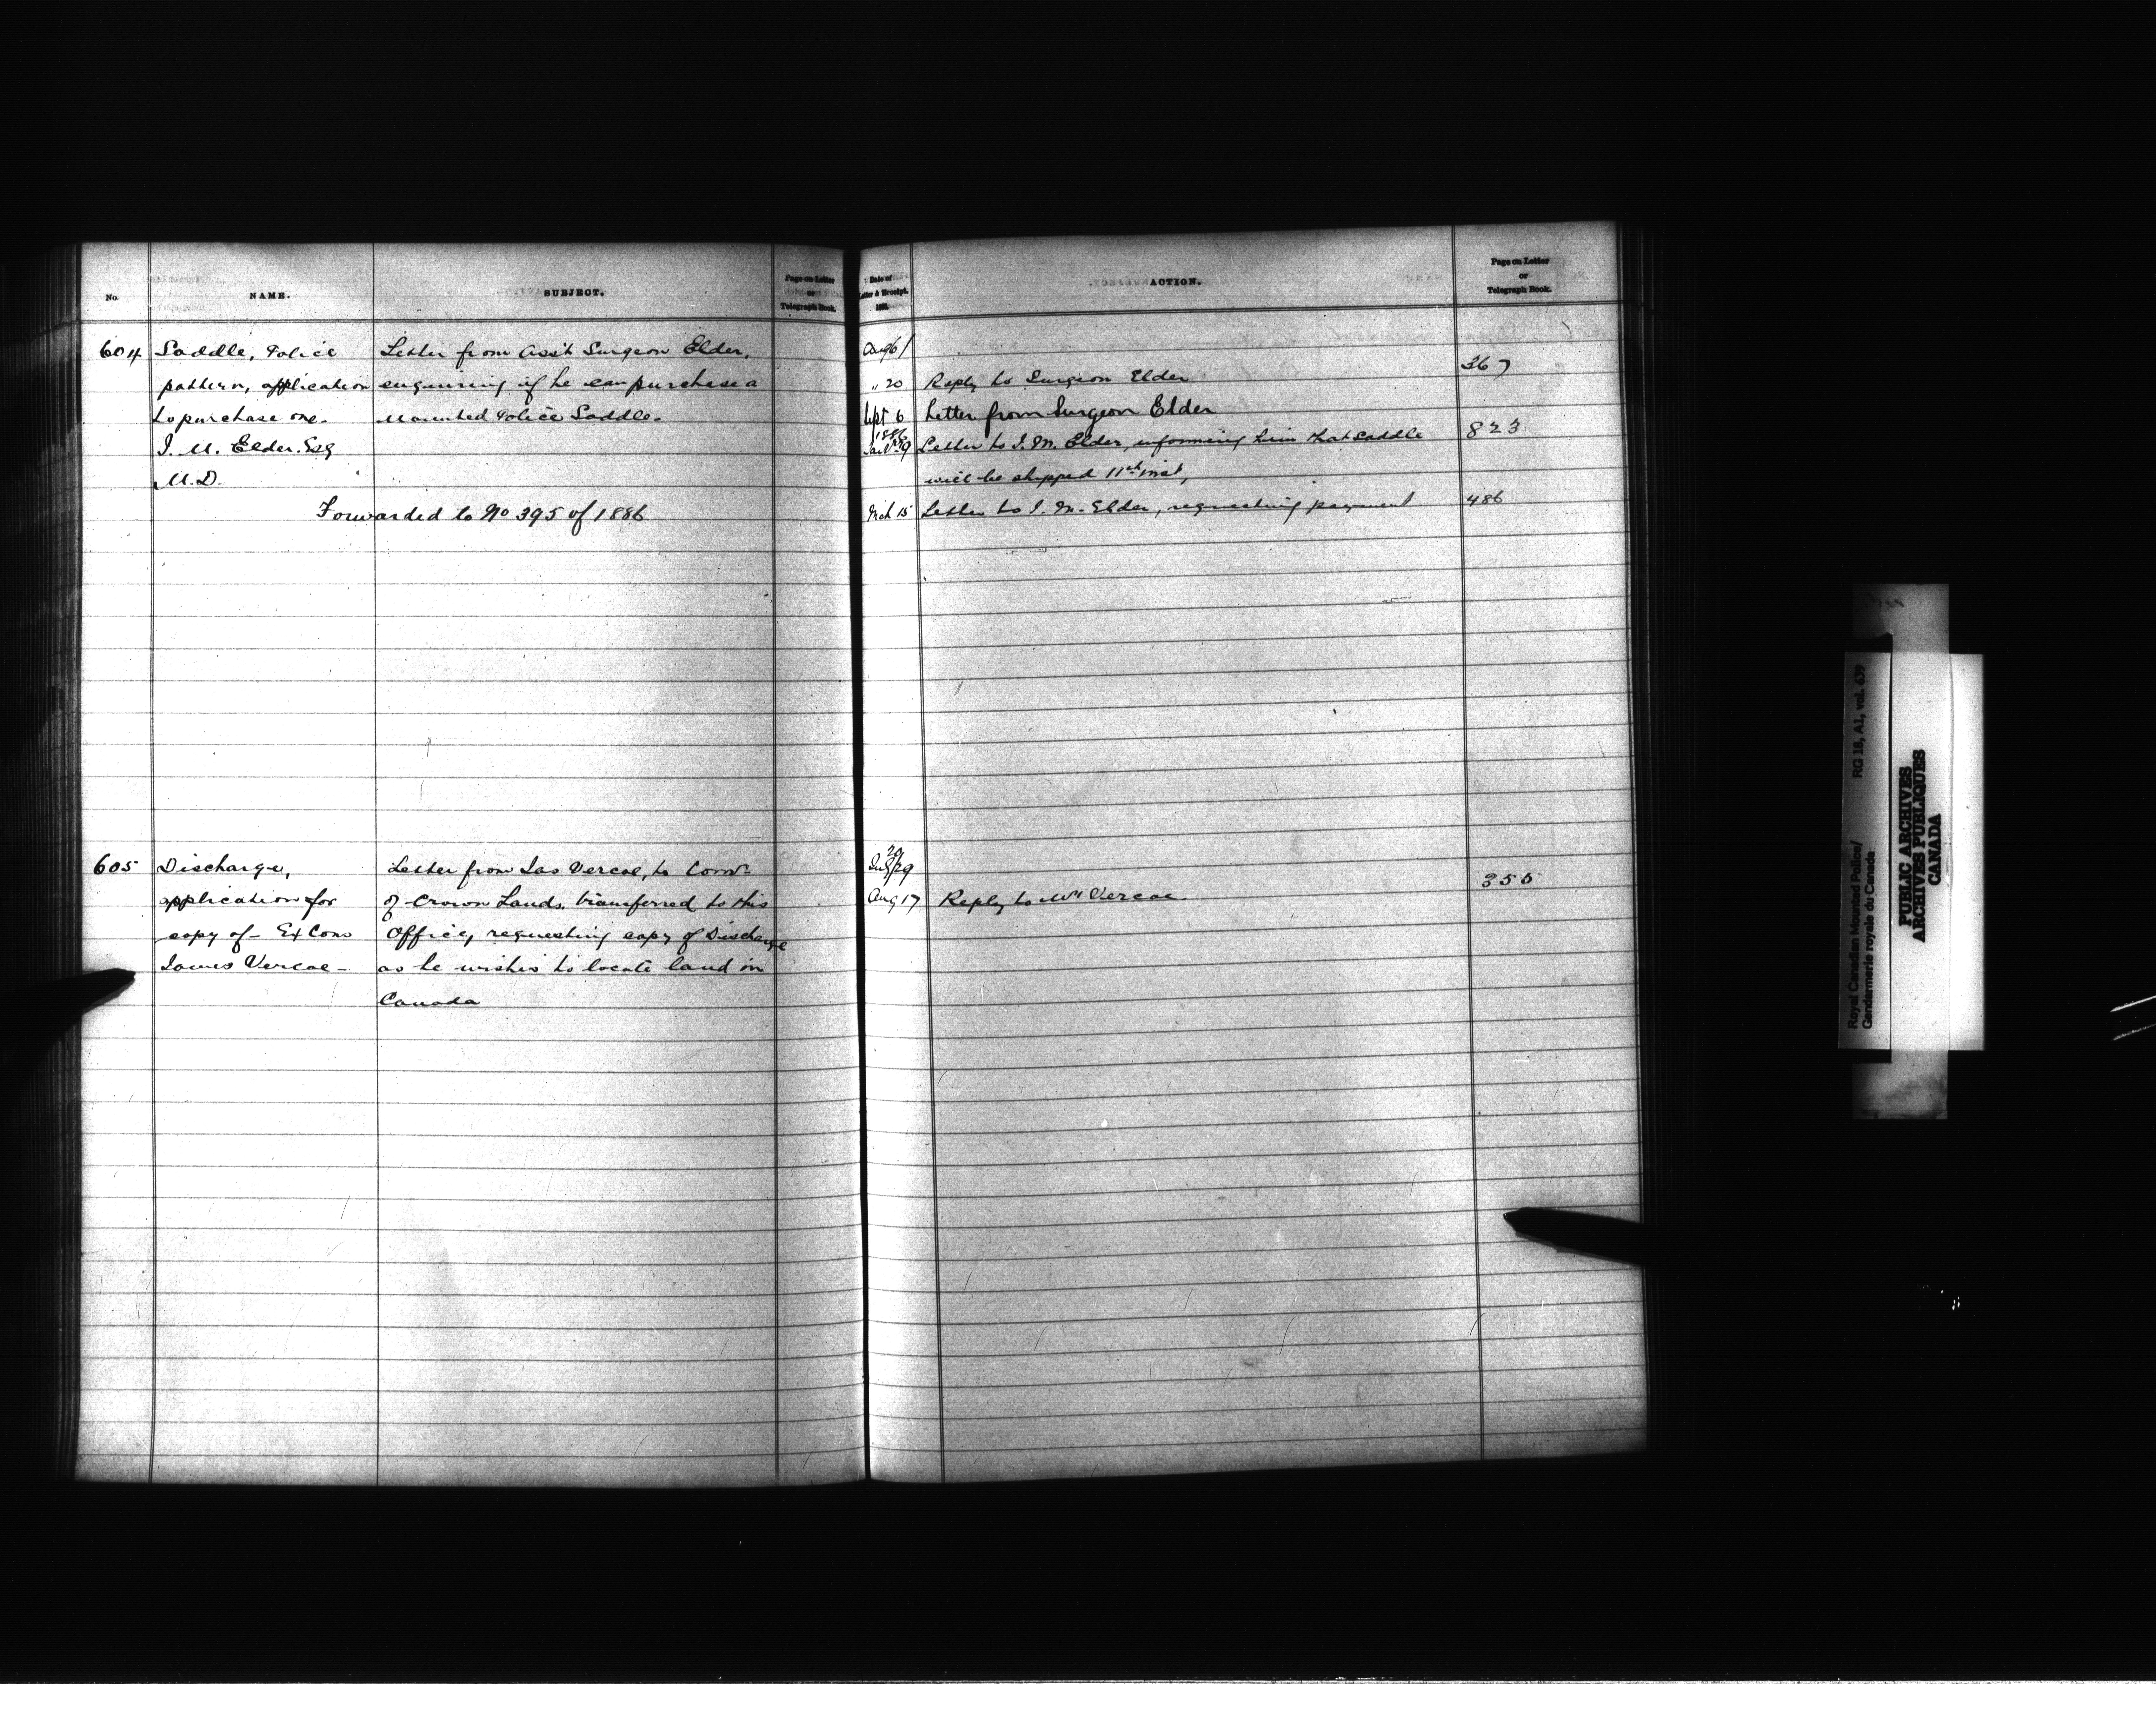 No.
NAME.
SUBJECT.
Page on Letter
or
Telegraph Book.
604
Saddle, Police
pattern, application
to purchase one.
J. M. Elder. Esq
M.D.
Letter from Ass't Surgeon Elder,
enquiring if he can purchase a
Mounted Police Saddle.
Forwarded to No 395 of 1886
605
Discharge,
application for
copy of - Ex Cons
James Vercoe -
Letter from Jas Vercoe, to Comr
of Crown Lands. transferred to this
Office, requesting copy of Discharge
as he wishes to locate land in
Canada
Date of
Letter & Receipt.
ACTION.
Page on Letter
or
Telegraph Book.
Aug
" 20 Reply to Surgeon Elder 367
Sept 6 Letter from Surgeon Elder
1886
Letter to J. M. Elder, informing him that saddle 823
will be shipped 11th inst,
Mch 15 Letter to J. M. Elder, requesting payment 486
Aug 17 Reply to Mr Vercoe. 355
Royal Canadian Mounted Police/
Gendarmerie royale du Canada
RG 18, A1, vol. 639
PUBLIC ARCHIVES
ARCHIVES PUBLIQUES
CANADA